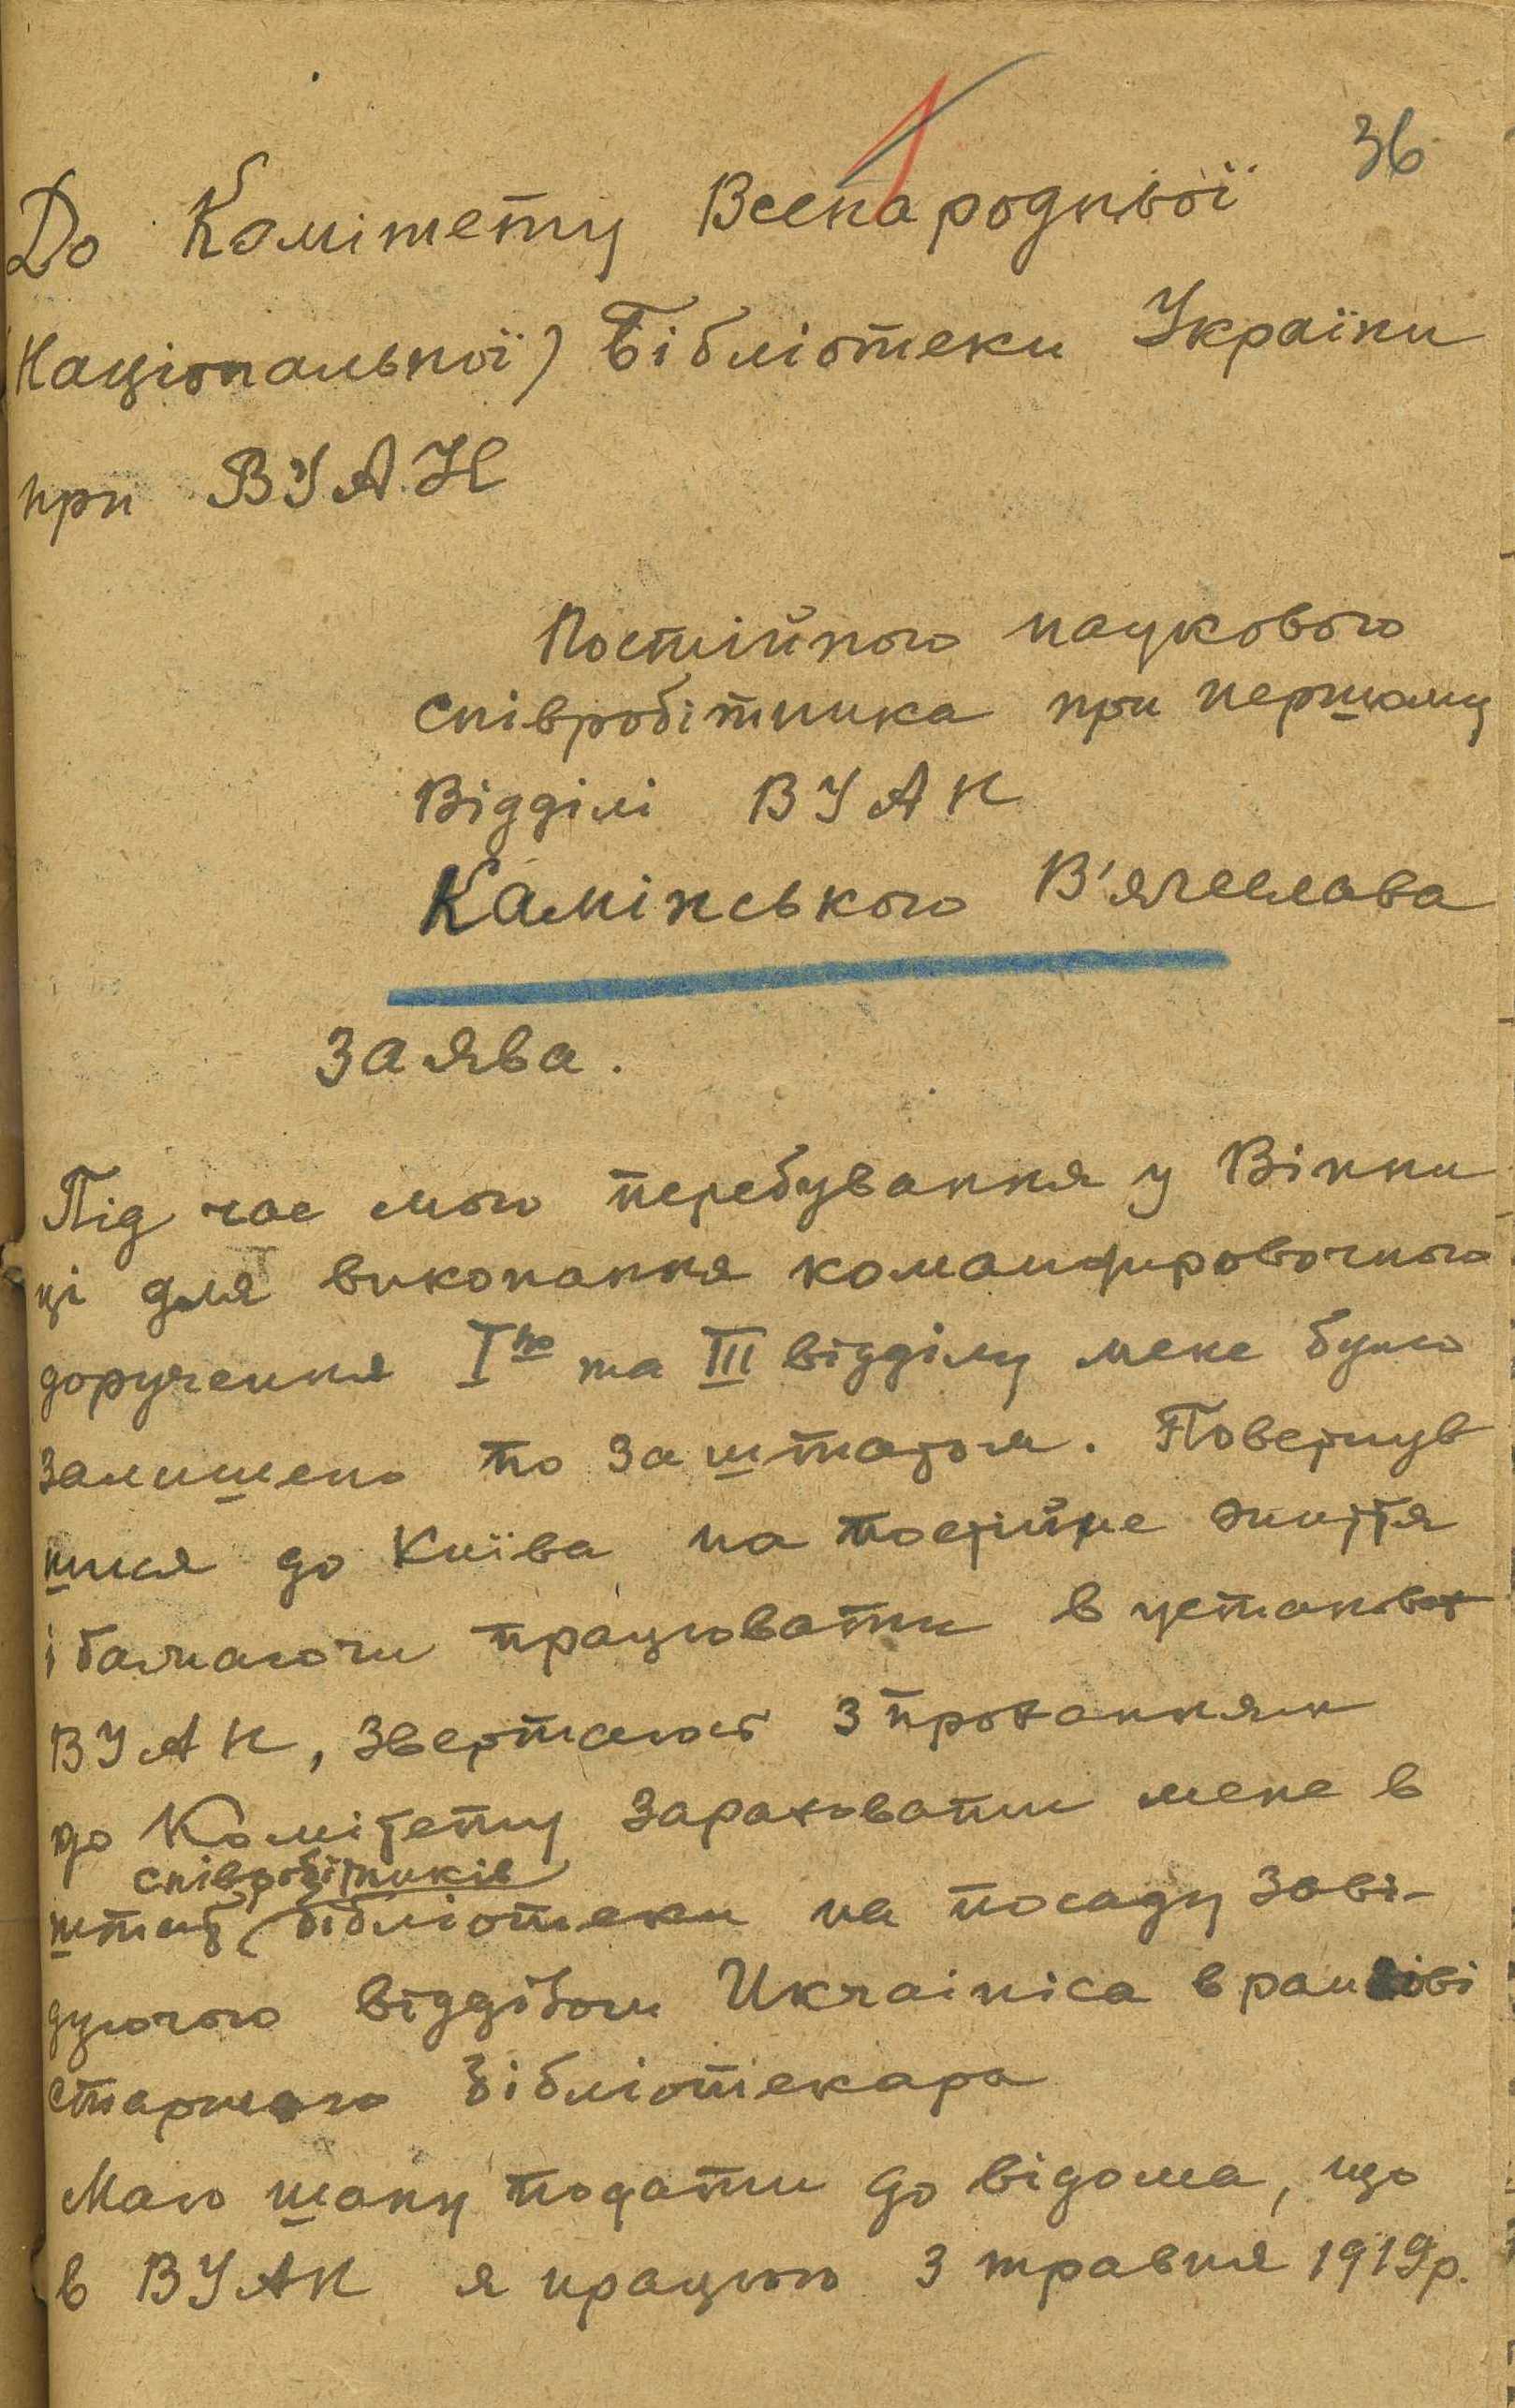 36
До Комітету Всенародньої
(Національної) Бібліотеки України
при ВУАН
Постійного наукового
співробітника при першому
Відділі ВУАН
Камінського В'ячеслава
Заява.
Під час мого перебування у Вінни
ці для виконання командировочного
доручення Іго та ІІІ відділу мене було
залишено по за штатом. Повернув
шися до Київа на постійне життя
і бажаючи працювати в установах
ВУАН, звертаюсь з проханням
до Комітету зарахувати мене в
співробітників
штат бібліотеки на посаду заві-
дуючого відділом Ukrainica в ранзові
старшого бібліотекара
Маю шану подати до відома, що
в ВУАН я працюю з травня 1919р.